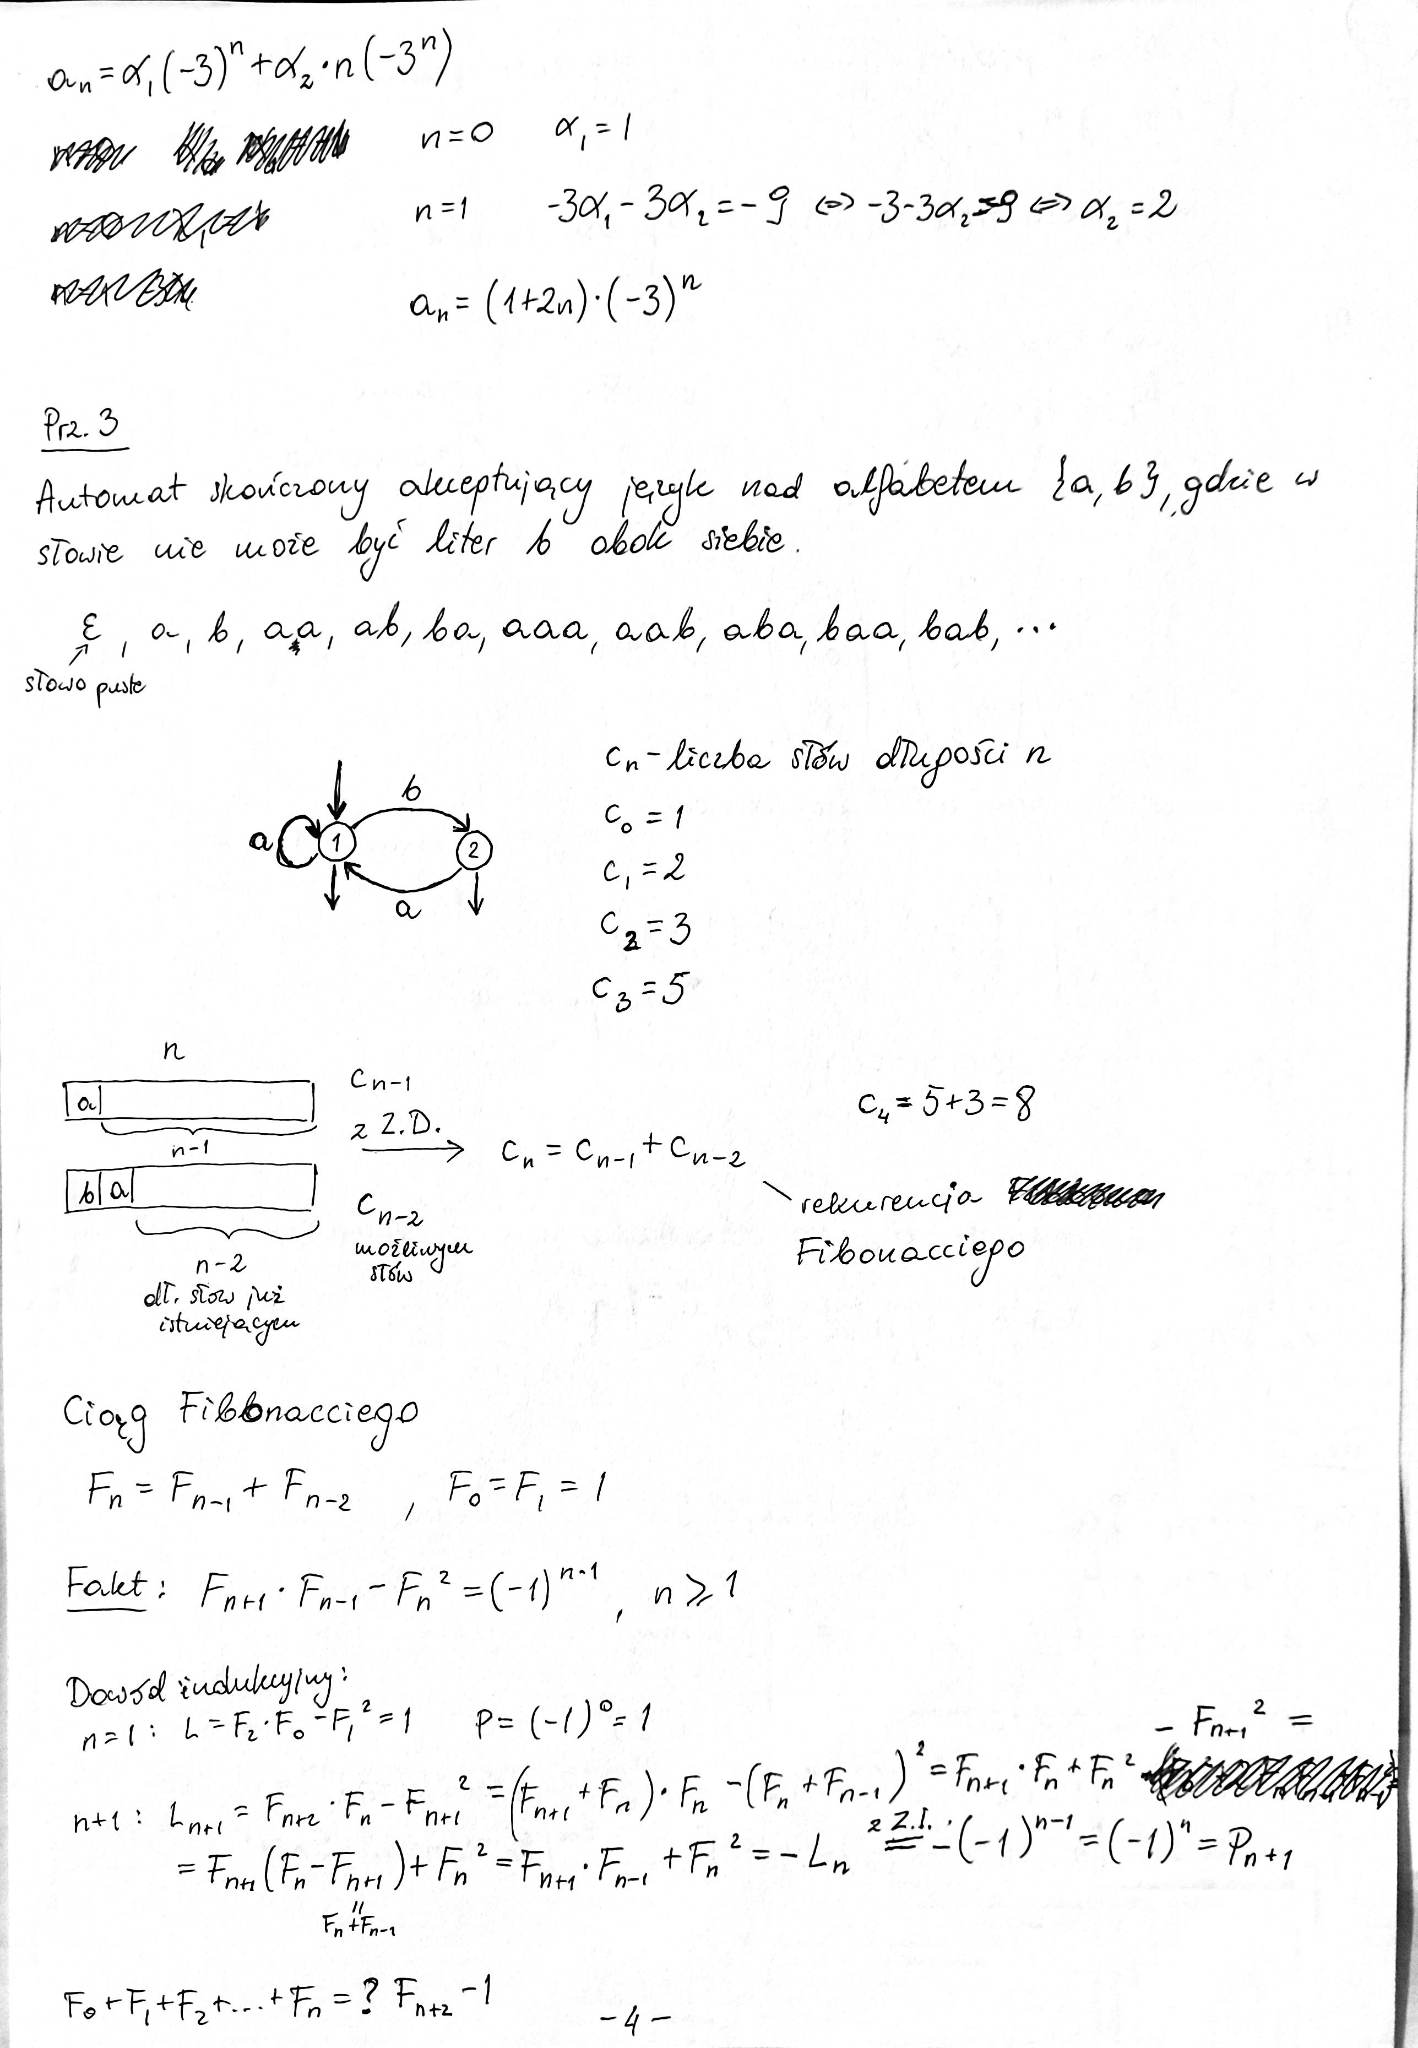 aₙ = α₁(-3)ⁿ + α₂·n(-3ⁿ)
n=0 α₁=1
n=1 -3α₁-3α₂=-9 ⇔ -3-3α₂=-9 ⇔ α₂=2
aₙ=(1+2n)·(-3)ⁿ
Prz. 3
Automat skończony akceptujący język nad alfabetem {a,b}, gdzie w
słowie nie może być liter b obok siebie.
ε, a, b, aa, ab, ba, aaa, aab, aba, baa, bab, ...
słowo puste
cₙ - liczba słów długości n
c₀ = 1
c₁ = 2
c₂ = 3
c₃ = 5
b
a 1 2
a
n
a
n-1
b a
n-2
dł. słów już
istniejącym
cₙ₋₁
z Z.D.
cₙ₋₂
możliwym
słów
cₙ = cₙ₋₁ + cₙ₋₂
c₄ = 5+3 = 8
rekurencja
Fibonacciego
Ciąg Fibonacciego
Fₙ = Fₙ₋₁ + Fₙ₋₂ , F₀ = F₁ = 1
Fakt: Fₙ₊₁ · Fₙ₋₁ - Fₙ² = (-1)ⁿ⁻¹, n ⩾ 1
Dowód indukcyjny:
n=1: L = F₂·F₀ - F₁² = 1 P = (-1)⁰ = 1
n+1: Lₙ₊₁ = Fₙ₊₂ · Fₙ - Fₙ₊₁² = (Fₙ₊₁ + Fₙ) · Fₙ - (Fₙ + Fₙ₋₁)² = Fₙ₊₁ · Fₙ + Fₙ² - Fₙ₊₁² =
= Fₙ₊₁(Fₙ - Fₙ₊₁) + Fₙ² = Fₙ₊₁ · Fₙ₋₁ + Fₙ² = - Lₙ z Z.I. = -(-1)ⁿ⁻¹ = (-1)ⁿ = Pₙ₊₁
=
Fₙ+Fₙ₋₁
F₀+F₁+F₂+...+Fₙ = ? Fₙ₊₂ - 1
- 4 -